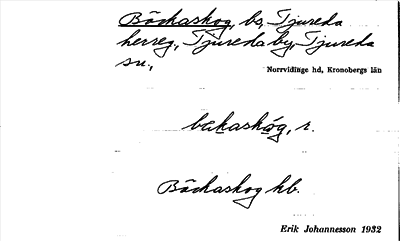 Bäckaskog, bs, Tjureda
herreg, Tjureda by, Tjureda
sn.,
Norrvidinge hd, Kronobergs län
bakaskóg, r.
Bäckaskog hb.
Erik Johannesson 1932